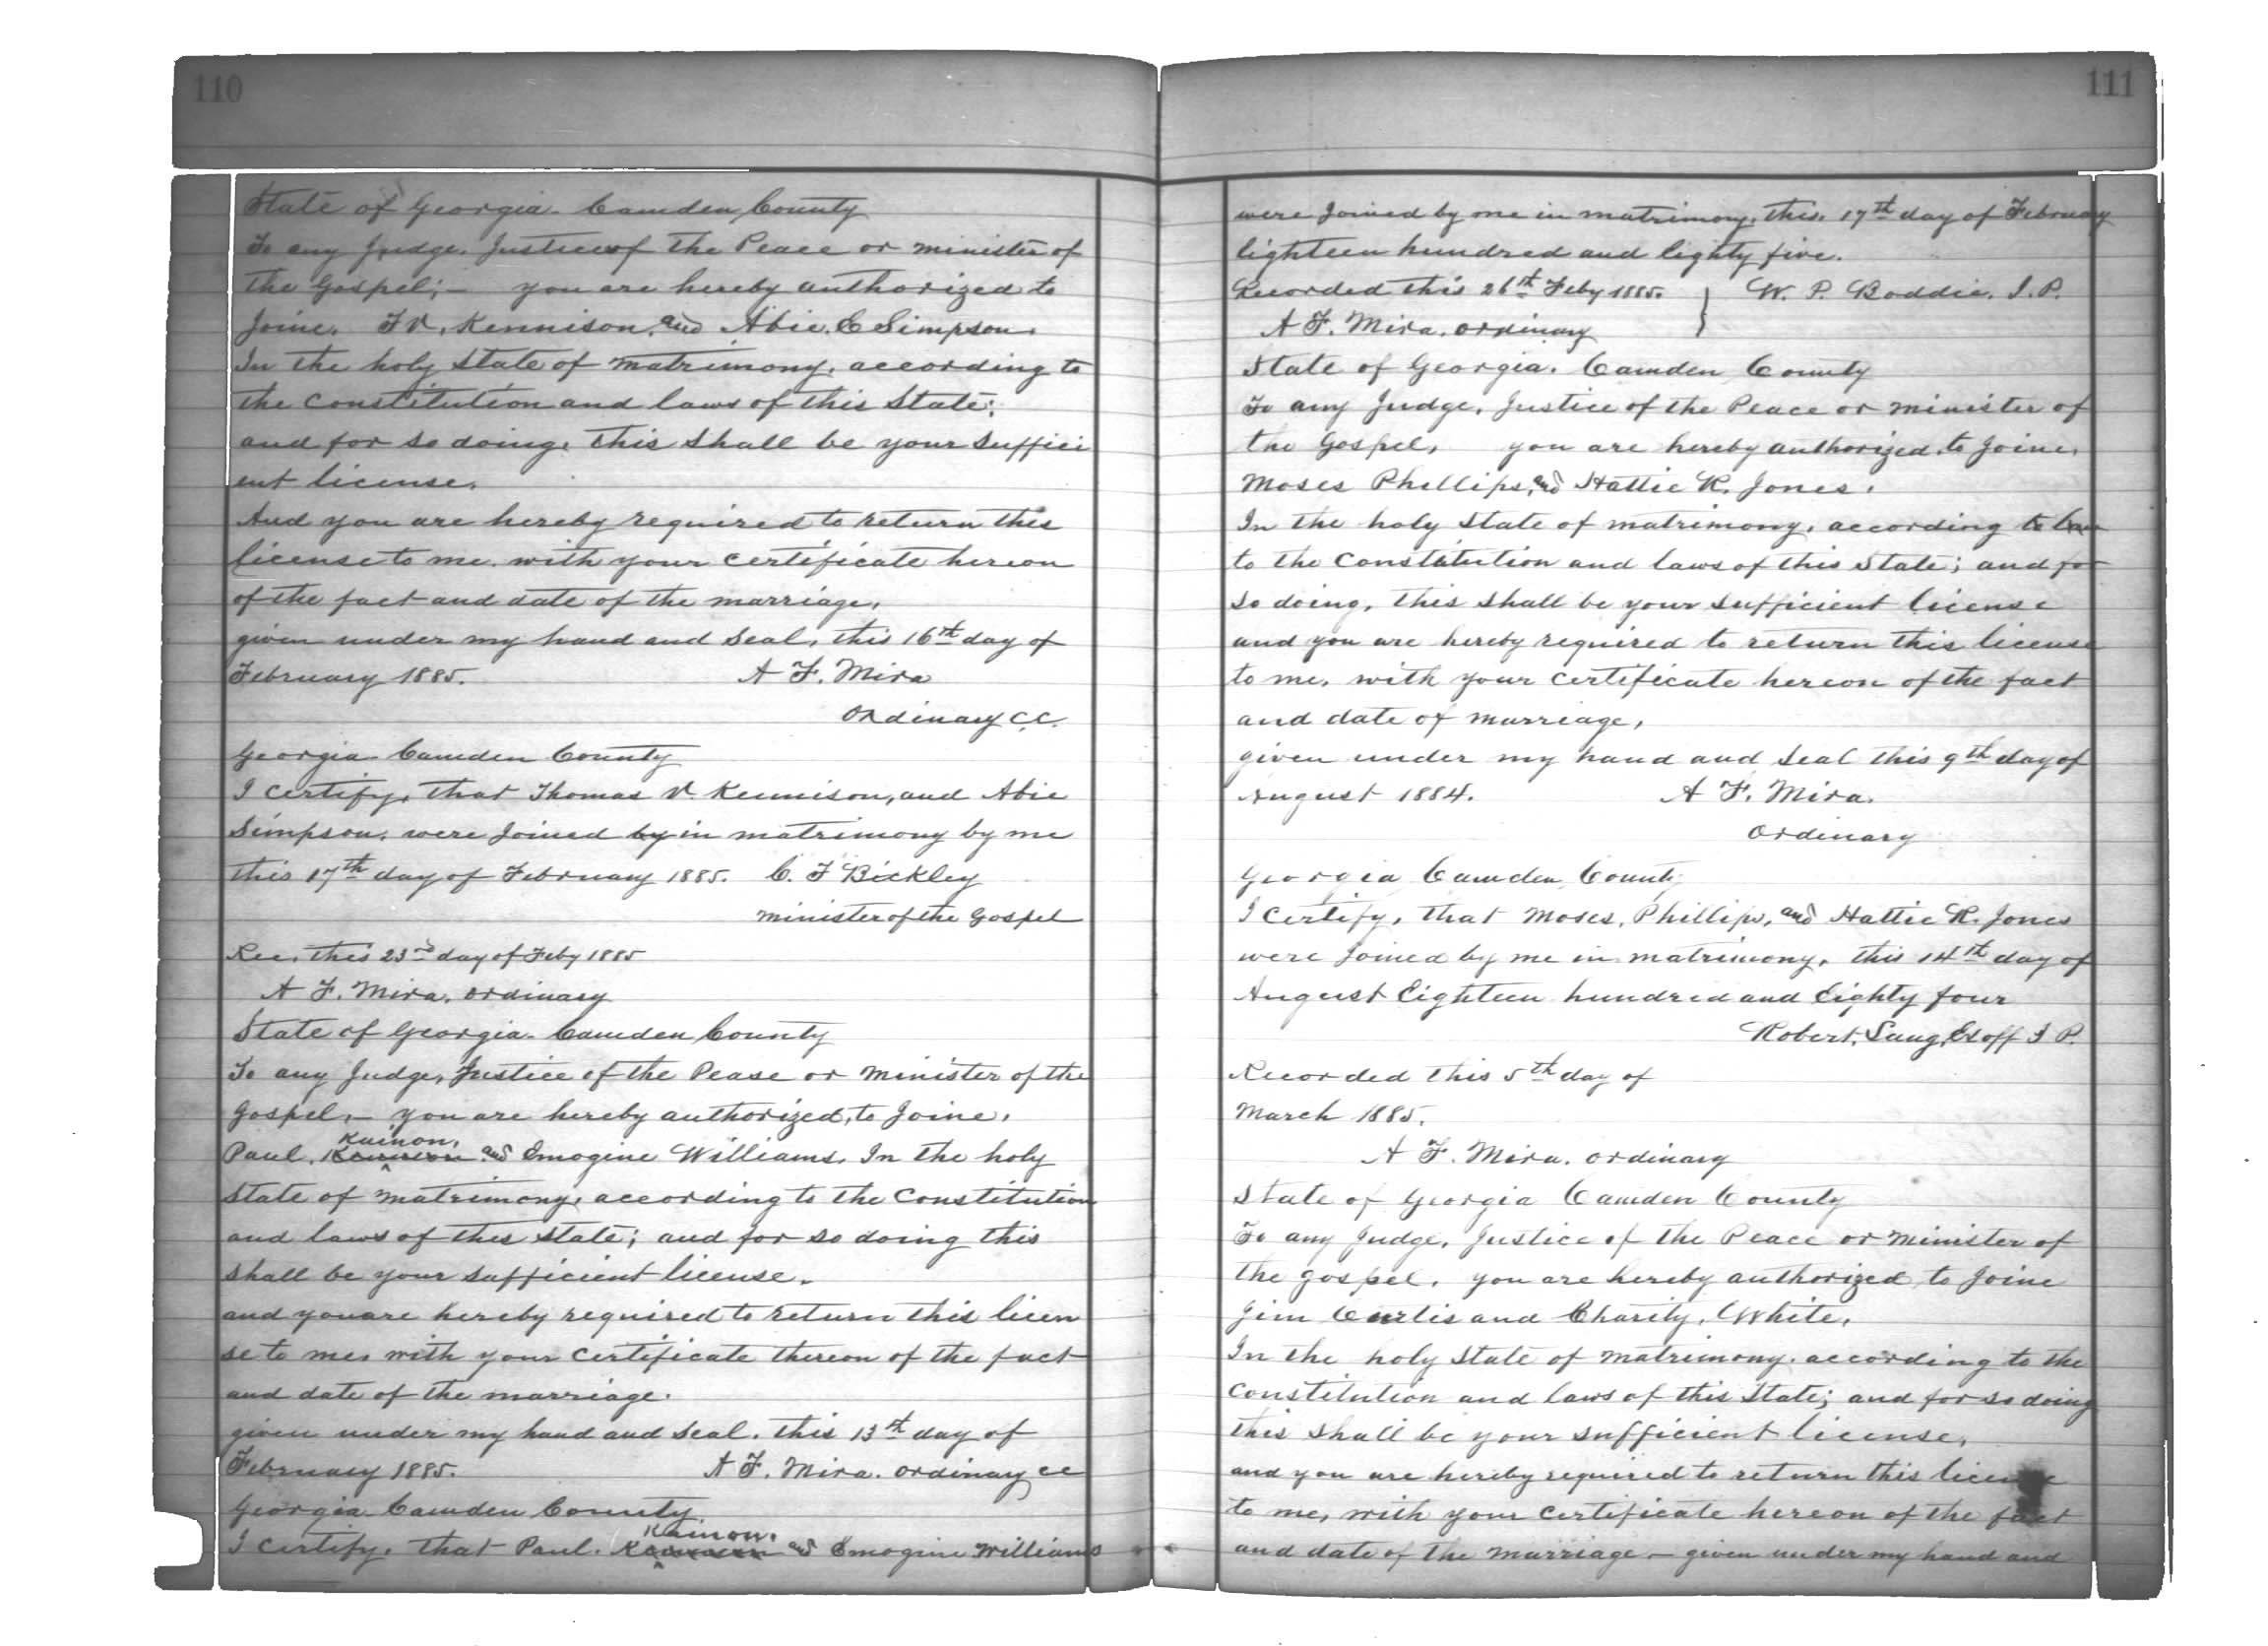 110
State of Georgia - Camden County
To any Judge, Justice of the Peace or minister of
the Gospel; - you are hereby authorized to
Joine. T V. Kennison, and Abie. C Simpson.
In the holy State of matrimony, according to
the Constitution and laws of this State;
and for so doing, this shall be your suffici
ent license.
And you are hereby required to return this
license to me. with your certificate hereon
of the fact and date of the marriage,
given under my hand and Seal, this 16th day of
February 1885. A F. Mira
Ordinary C.C.
Georgia Camden County
I certify, that Thomas V. Kennison, and Abie
Simpson, were Joined by in matrimony by me
this 17th day of February 1885. C. F Bickley
minister of the Gospel
Rec. this 23rd day of Feby 1885
A F. Mira, ordinary
State of Georgia - Camden County
To any Judge, Justice of the Pease or minister of the
Gospel, - you are hereby authorized, to Joine,
Kainon,
Paul. and Emogine Williams. In the holy
State of matrimony, according to the Constitution
and laws of this State; and for so doing this
shall be your sufficient license.
and you are hereby required to return this licen
se to me, with your certificate thereon of the fact
and date of the marriage.
given under my hand and Seal. this 13th day of
February 1885. A F. Mira. ordinary cc
Georgia Camden County
Kainon.
I certify, that Paul. and Emogine Williams
111
were Joined by me in matrimony, this, 17th day of February
Eighteen hundred and Eighty five.
Recorded this 26th Feby 1885. } W. P. Boddie. J. P.
A F. Mira. ordinary
State of Georgia. Camden County
To any Judge, Justice of the Peace or minister of
the Gospel, you are hereby authorized to Joine,
Moses Phillips, and Hattie R. Jones.
In the holy State of matrimony, according to
to the Constitution and laws of this State; and for
so doing, this shall be your sufficient license
and you are hereby required to return this license
to me, with your certificate hereon of the fact
and date of marriage,
given under my hand and Seal this 9th day of
August 1884. A F. Mira.
Ordinary
Georgia Camden County
I certify, that Moses, Phillips, and Hattie R. Jones
were Joined by me in matrimony, this 14th day of
August Eighteen hundred and Eighty four
Robert, Exoff J P.
Recorded this 5th day of
March 1885.
A F. Mira. ordinary
State of Georgia Camden County
To any Judge, Justice of the Peace or minister of
the gospel. you are hereby authorized to Joine
Jim Curtis and Charity, White,
In the holy State of matrimony. according to the
Constitution and laws of this State; and for so doing
this shall be your sufficient license,
and you are hereby required to return this license
to me, with your certificate hereon of the fact
and date of the marriage - given under my hand and